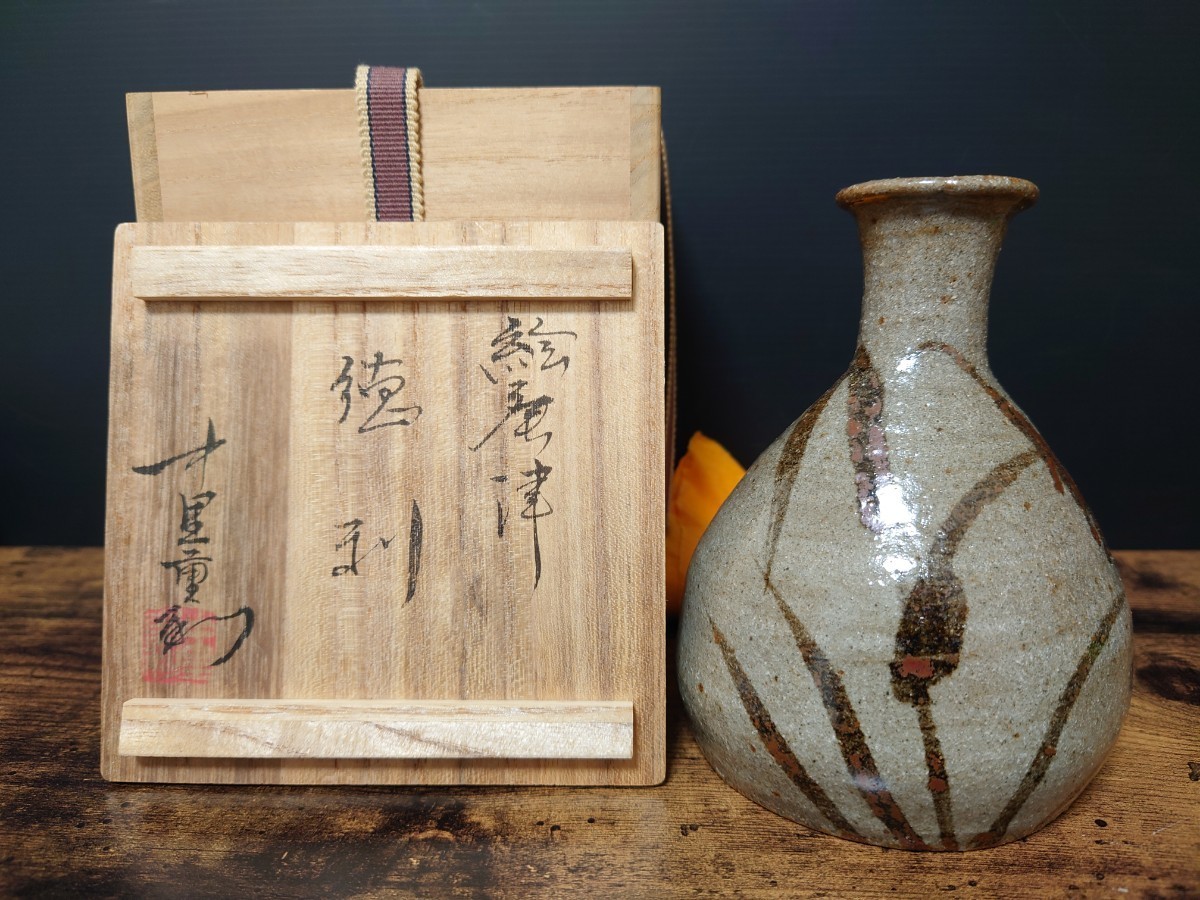 絵唐津
徳利
十里重利